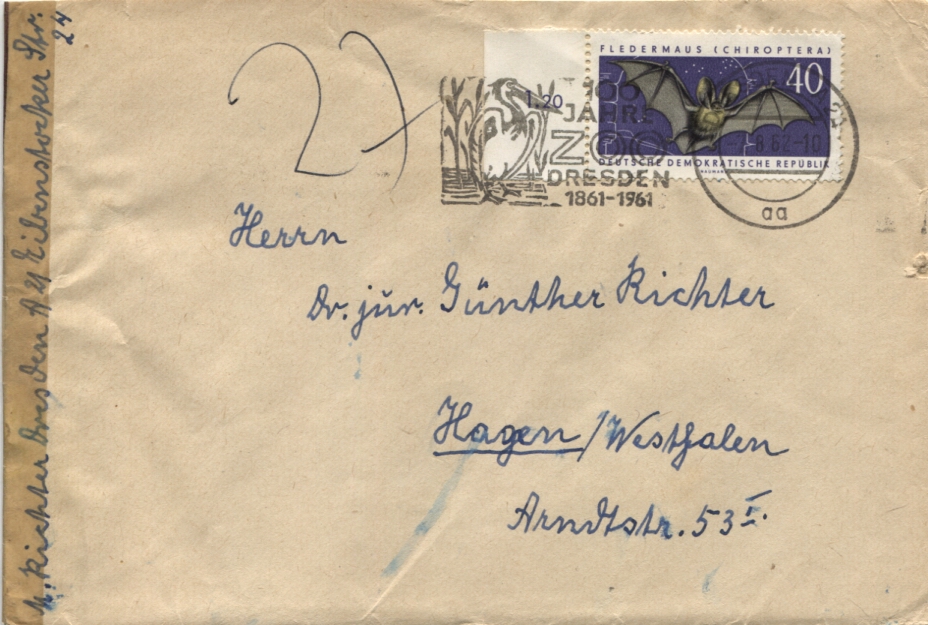 FLEDERMAUS (CHIROPTERA)
40
1.20
DEUTSCHE DEMOKRATISCHE REPUBLIK
100
JAHRE
ZOO
DRESDEN
1861-1961
8.62-10
aa
Herrn
Dr. jur. Günther Richter
Hagen/Westfalen
Arndtstr. 53 I.
Richter Dresden A 21 Eibenstocker Str.
24